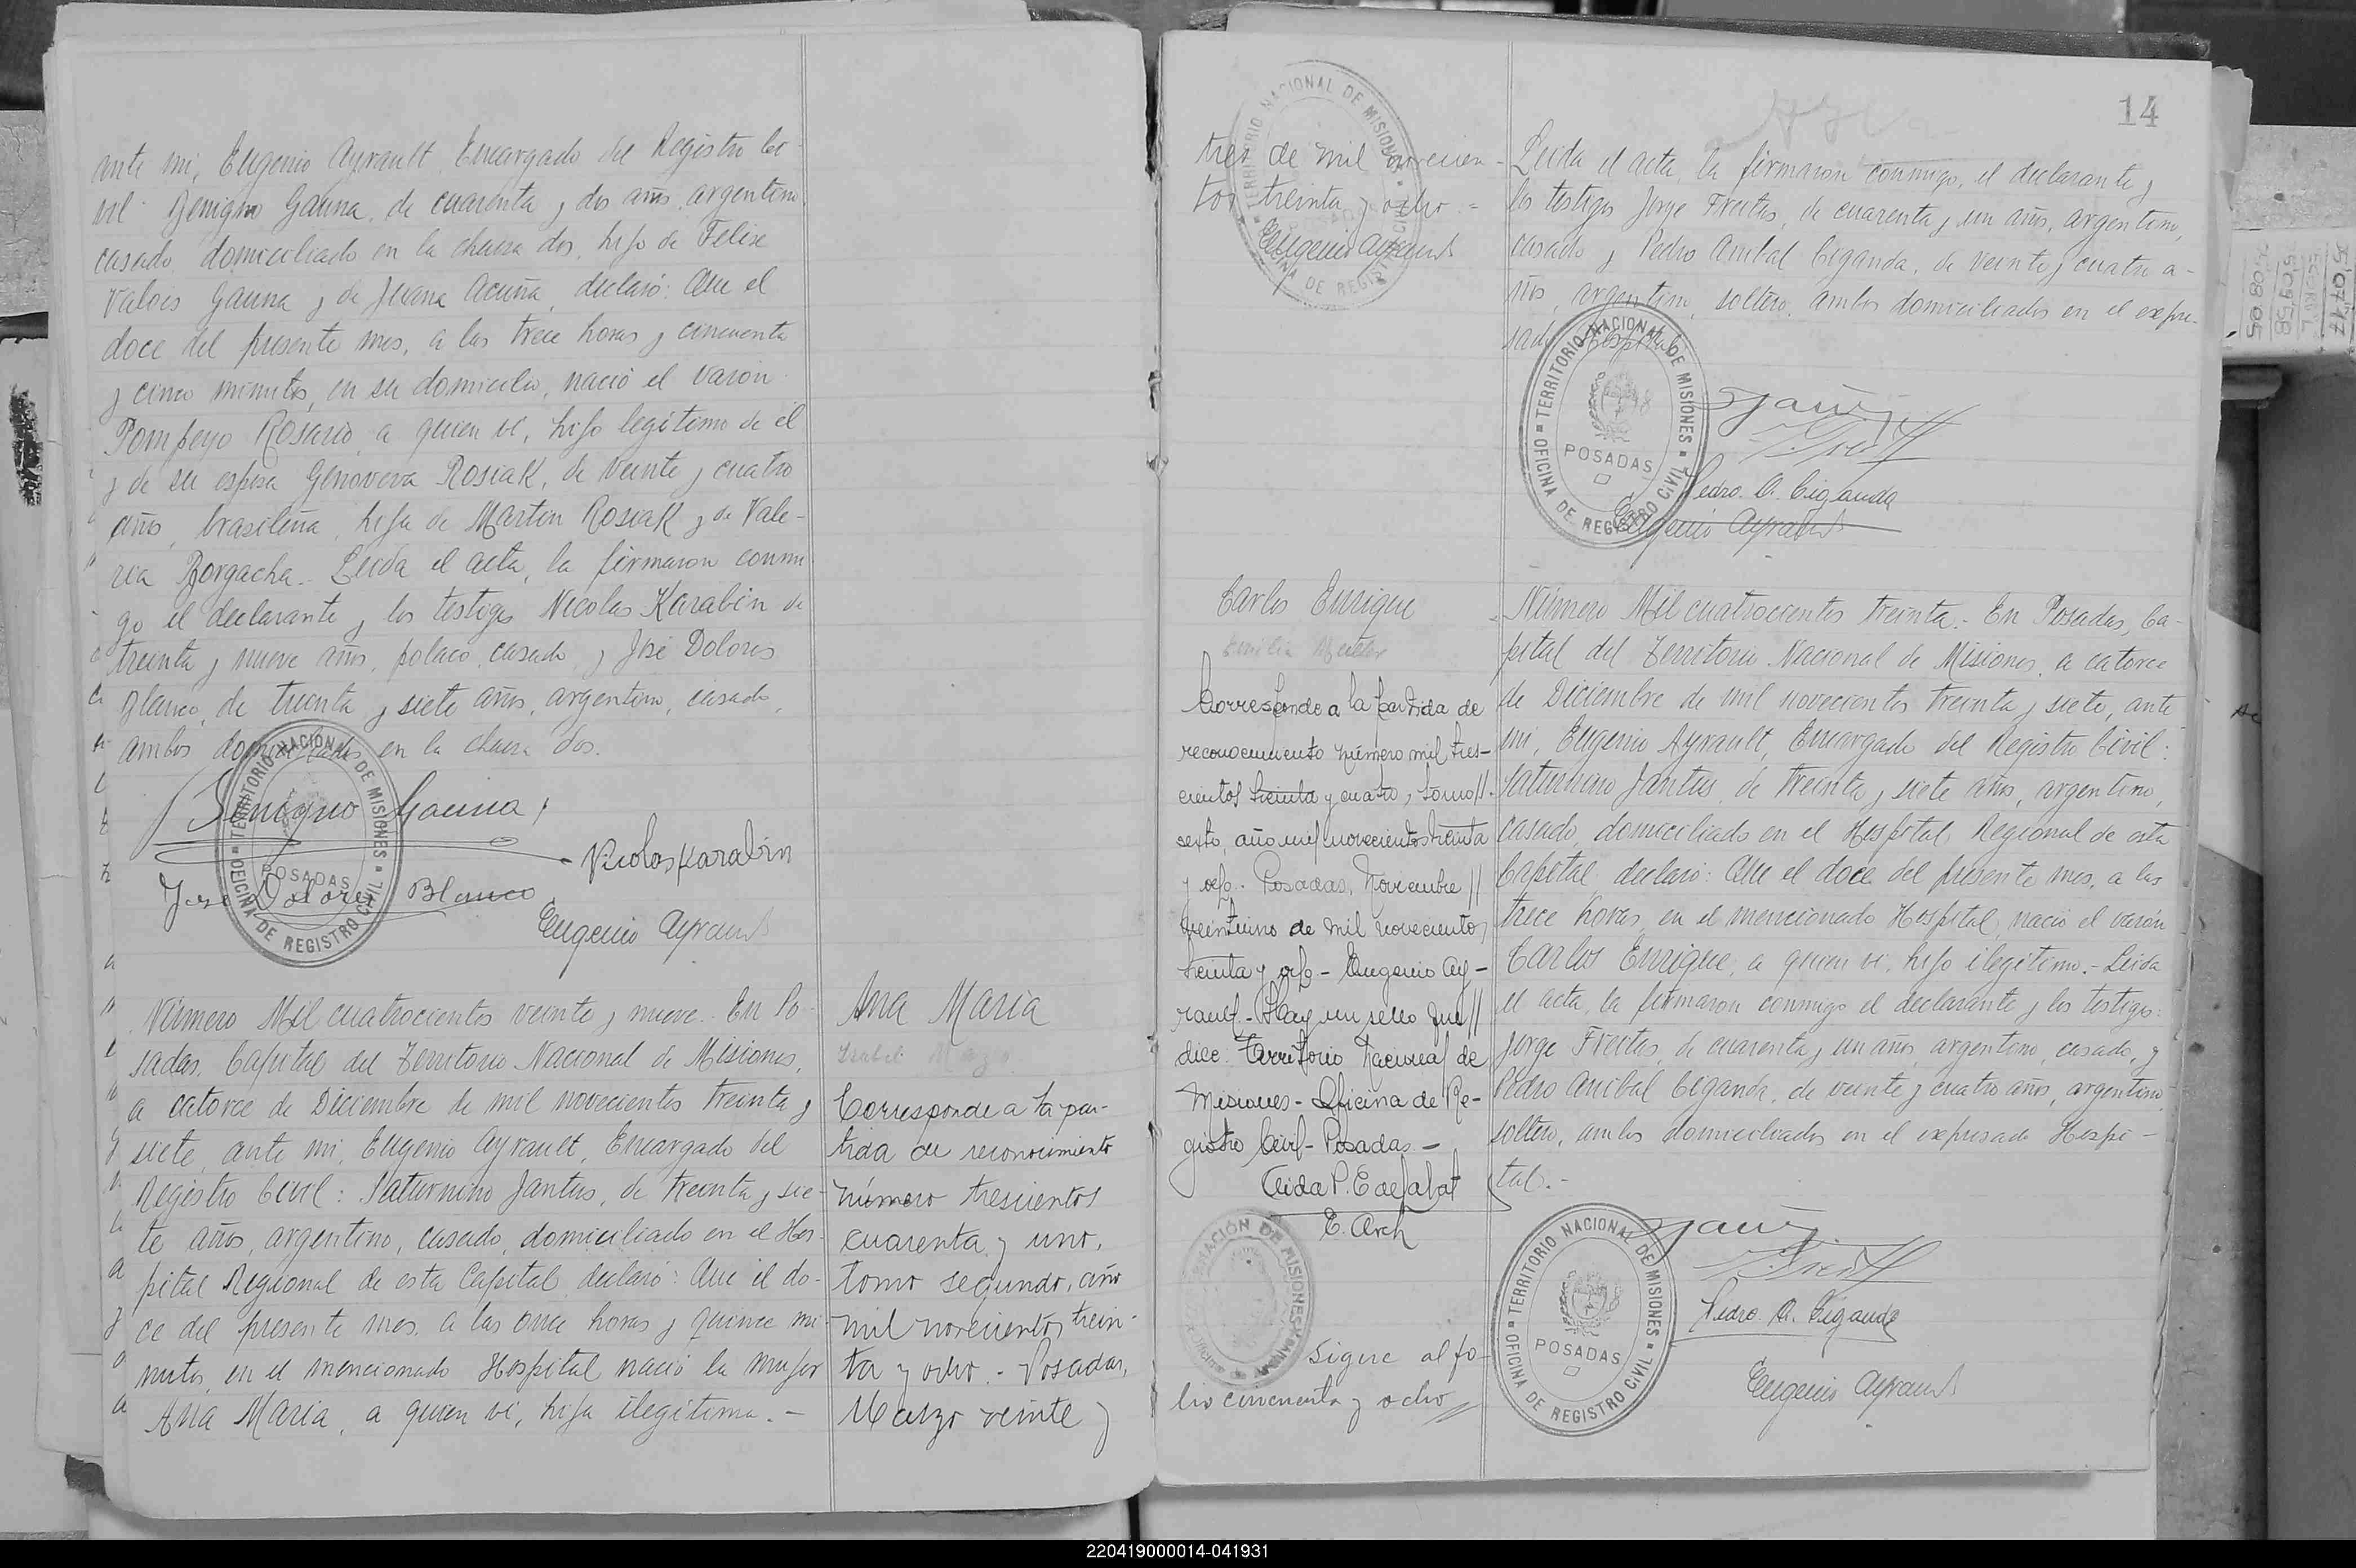 ante mi, Eugenio Ayrault, Encargado del Registro Ci-
vil: Benigno Gauna, de cuarenta y dos años, argentino,
casado, domiciliado en la chacra dos, hijo de Felix
Valois Gauna y de Juana Acuña, declaró: Que el
doce del presente mes, a las trece horas y cincuenta
y cinco minutos, en su domicilio, nació el varón
Pompeyo Rosario, a quien vi, hijo legítimo de él
y de su esposa Genoveva Rosiak, de veinte y cuatro
años, brasileña, hija de Martin Rosiak y de Vale-
ria Borgacha.- Leida el acta, la firmaron conmi-
go el declarante y los testigos Nicolas Karabin de
treinta y nueve años, polaco, casado, y José Dolores
Blanco, de treinta y siete años, argentino, casado,
ambos domiciliados en la chacra dos.
Benigno Gauna
Nicolas Karabin
José Dolores Blanco
Eugenio Ayrault
TERRITORIO NACIONAL DE MISIONES
POSADAS
OFICINA DE REGISTRO CIVIL
Número Mil cuatrocientos veinte y nueve. En Po-
sadas, Capital del Territorio Nacional de Misiones,
a catorce de Diciembre de mil novecientos treinta y
siete, ante mi, Eugenio Ayrault, Encargado del
Registro Civil: Saturnino Jantus, de treinta y sie-
te años, argentino, casado, domiciliado en el Hos-
pital Regional de esta Capital, declaró: Que el do-
ce del presente mes, a las once horas y quince mi-
nutos, en el mencionado Hospital nació la mujer
Ana Maria, a quien vi, hija ilegítima.-
Ana Maria
Corresponde a la par-
tida de reconocimiento
número trescientos
cuarenta y uno,
tomo segundo, año
mil novecientos trein-
ta y ocho.- Posadas,
Marzo veinte y
tres de mil novecien-
tos treinta y ocho.-
Eugenio Ayrault
TERRITORIO NACIONAL DE MISIONES
OFICINA DE REGISTRO CIVIL
14
Leida el acta, la firmaron conmigo, el declarante y
los testigos Jorge Freites, de cuarenta y un años, argentino,
casado y Pedro Anibal Ciganda, de veinte y cuatro a-
ños, argentino, soltero, ambos domiciliados en el expre-
sado Hospital
TERRITORIO NACIONAL DE MISIONES
POSADAS
OFICINA DE REGISTRO CIVIL
Pedro. A. Ciganda
Eugenio Ayrault
Carlos Enrique
Corresponde a la partida de
reconocimiento número mil tres-
cientos treinta y cuatro, tomo//
sexto, año mil novecientos treinta
y ocho. Posadas, Noviembre//
veintiuno de mil novecientos
treinta y ocho - Eugenio Ay-
rault - Hay un sello que//
dice. Territorio Nacional de
Misiones - Oficina de Re-
gistro Civil - Posadas.-
E. Arch
Sigue al fo-
lio cincuenta y ocho
Número Mil cuatrocientos treinta.- En Posadas, Ca-
pital del Territorio Nacional de Misiones, a catorce
de Diciembre de mil novecientos treinta y siete, ante
mi, Eugenio Ayrault, Encargado del Registro Civil:
Saturnino Jantus, de treinta y siete años, argentino,
casado, domiciliado en el Hospital Regional de esta
Capital, declaró: Que el doce del presente mes, a las
trece horas, en el mencionado Hospital, nació el varón
Carlos Enrique, a quien vi, hijo ilegítimo.- Leida
el acta, la firmaron conmigo el declarante y los testigos:
Jorge Freites, de cuarenta y un años, argentino, casado, y
Pedro Anibal Ciganda, de veinte y cuatro años, argentino
soltero, ambos domiciliados en el expresado Hospi-
tal.-
TERRITORIO NACIONAL DE MISIONES
POSADAS
OFICINA DE REGISTRO CIVIL
Pedro. A. Ciganda
Eugenio Ayrault
220419000014-041931